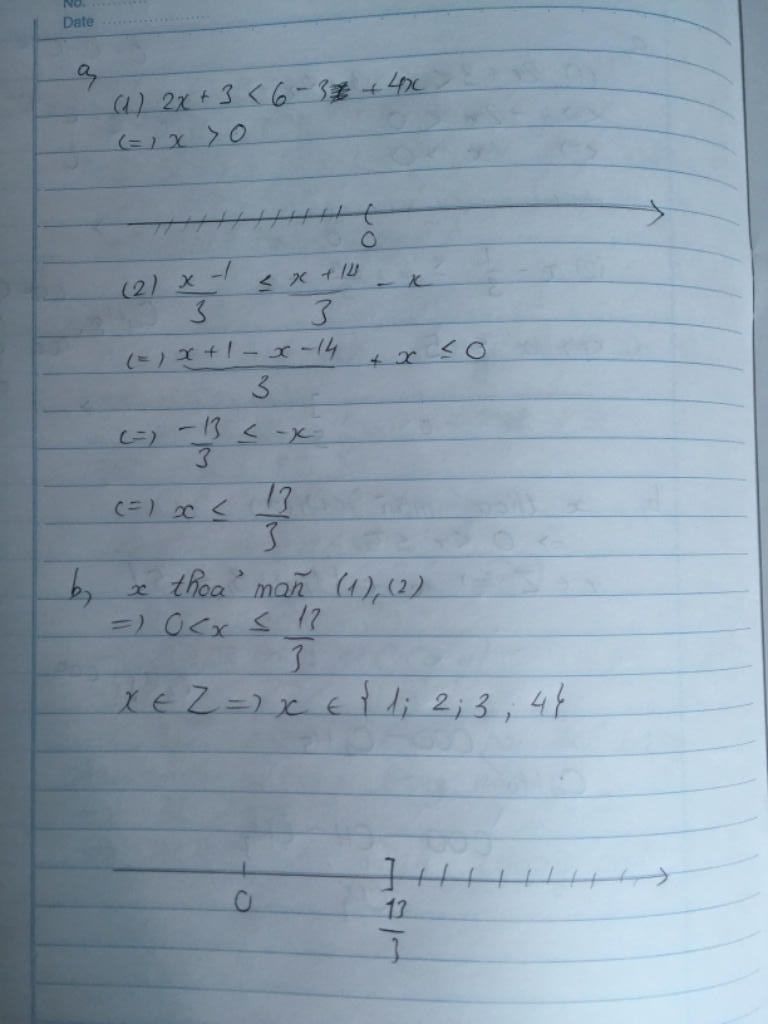 No.
Date
a,
(1) 2x + 3 < 6 - 3 + 4x
(=) x > 0
0
(2) \frac{x - 1}{3} ≤ \frac{x + 14}{3} - x
(=) \frac{x + 1 - x - 14}{3} + x ≤ 0
(=) \frac{-13}{3} ≤ -x
(=) x ≤ \frac{13}{3}
b, x thoả mãn (1), (2)
=) 0 < x ≤ \frac{13}{3}
x ∈ Z =) x ∈ { 1; 2; 3; 4}
0 \frac{13}{3}